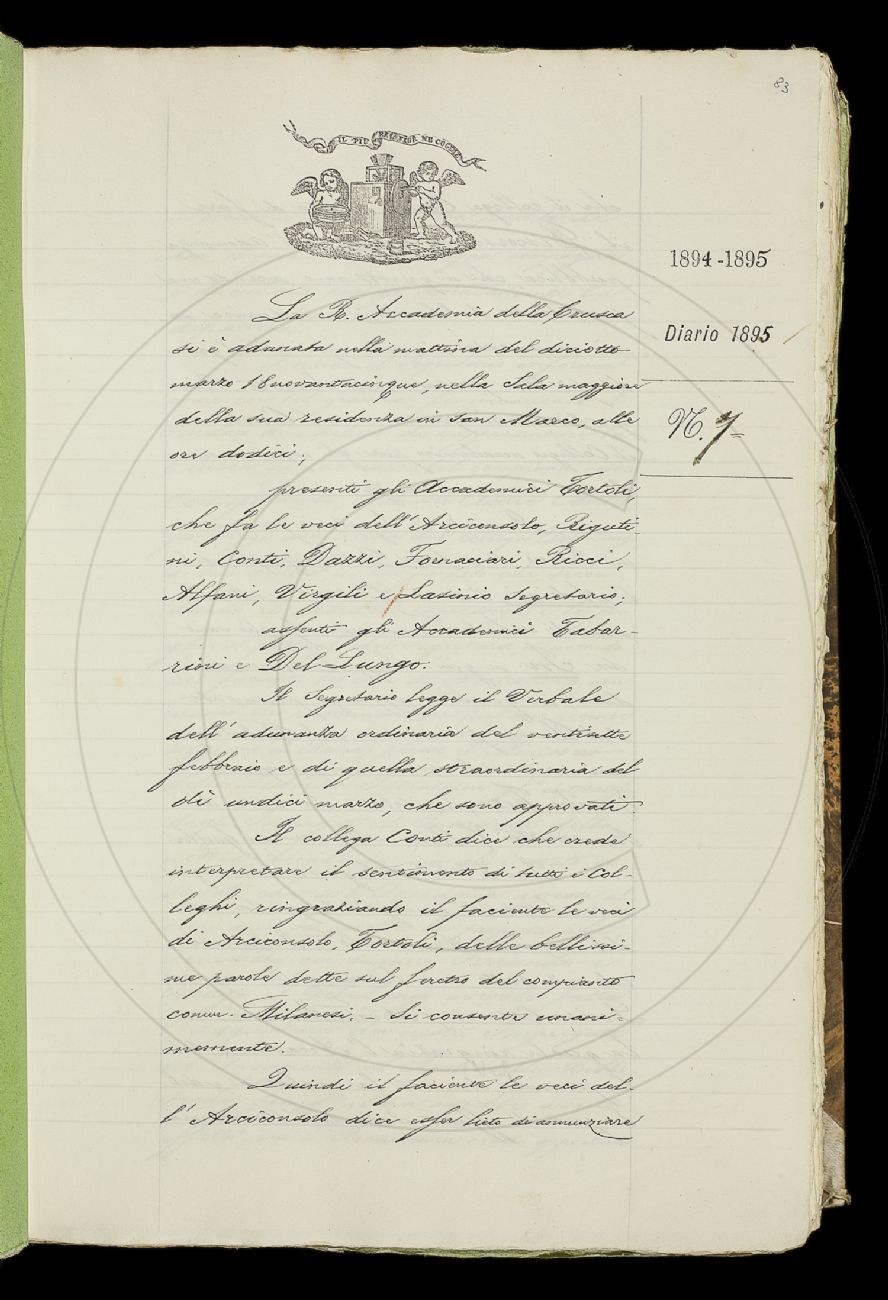 83
IL PIÙ BEL FIOR NE COGLIE
1894-1895
Diario 1895
N. 7=
La R. Accademia della Crusca
si è adunata nella mattina del diciotto
marzo 18novantacinque, nella Sala maggiore
della sua residenza in San Marco, alle
ore dodici;
presenti gli Accademici Tortoli,
che fa le veci dell'Arciconsolo, Riguti-
ni, Conti, Dazzi, Fornaciari, Ricci,
Alfani, Virgili e Lasinio Segretario;
assenti gli Accademici Tabar-
rini e Del-Lungo.
Il Segretario legge il Verbale
dell'adunanza ordinaria del ventisette
febbraio e di quella straordinaria del
dì undici marzo, che sono approvati.
Il collega Conti dice che crede
interpretare il sentimento di tutti i Col-
leghi, ringraziando il facente le veci
di Arciconsolo, Tortoli, delle bellissi-
me parole dette sul feretro del compianto
comm. Milanesi. - Si consente unani-
memente.
Quindi il facente le veci del-
l'Arciconsolo dice esser lieto di annunziare